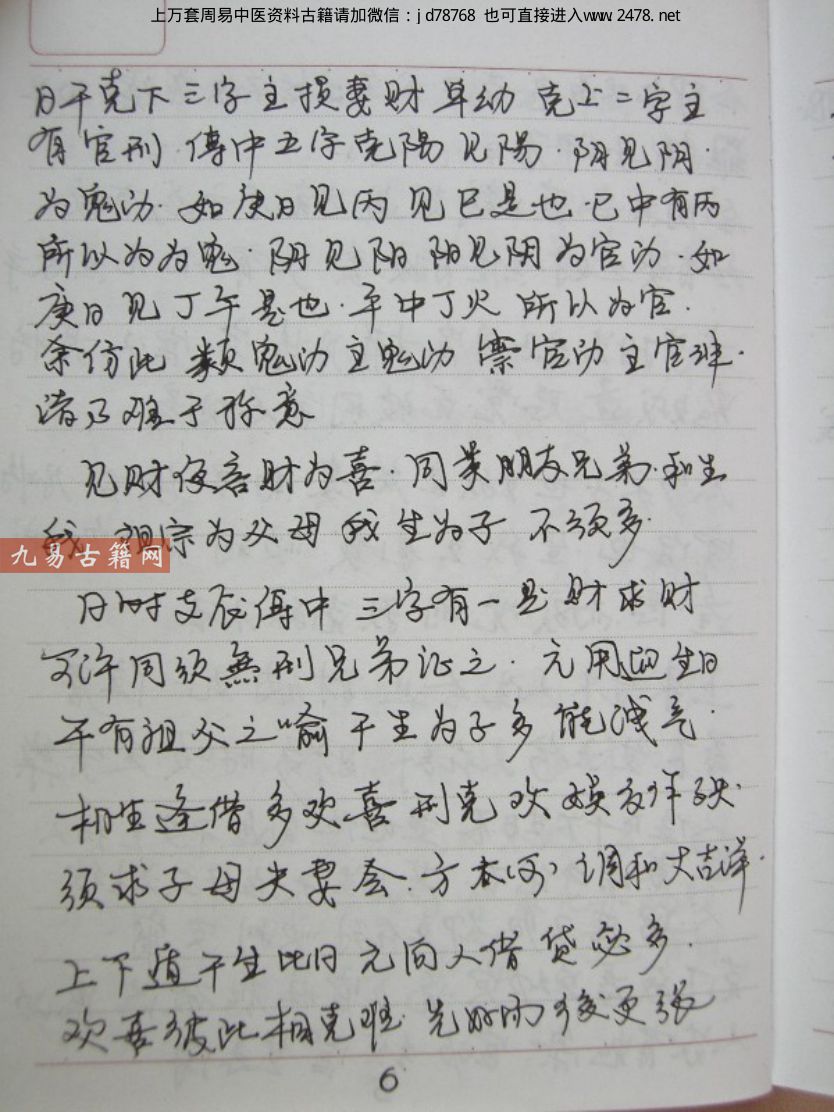 上万套周易中医资料古籍请加微信：jd78768 也可直接进入www.2478.net
日干克下三字主损妻财卑幼 克上二字主
有官刑·传中五字克陽见陽·阴见阴·
为鬼动·如庚日见丙见巳是也·巳中有丙
所以为为鬼·阴见阳阳见阴为官动·如
庚日见丁午是也·午中丁火所以为官·
余仿此 类鬼动主鬼动 官动主官
难于称意
见财 财为喜·同类朋友兄弟·和生
我祖宗为父母 我生为子 不须多·
九易古籍网
日时支辰传中 三字有一是财求财
可许同须無刑兄弟记之·元用 生日
干有祖父之喻 干生为子多能 ·
相生逢借多欢喜 刑克欢娱
须求子母夫妻会·方 调和大吉
上下遁干生比日 元向人借贷必多·
欢喜彼此相克难 先好 後更张
6